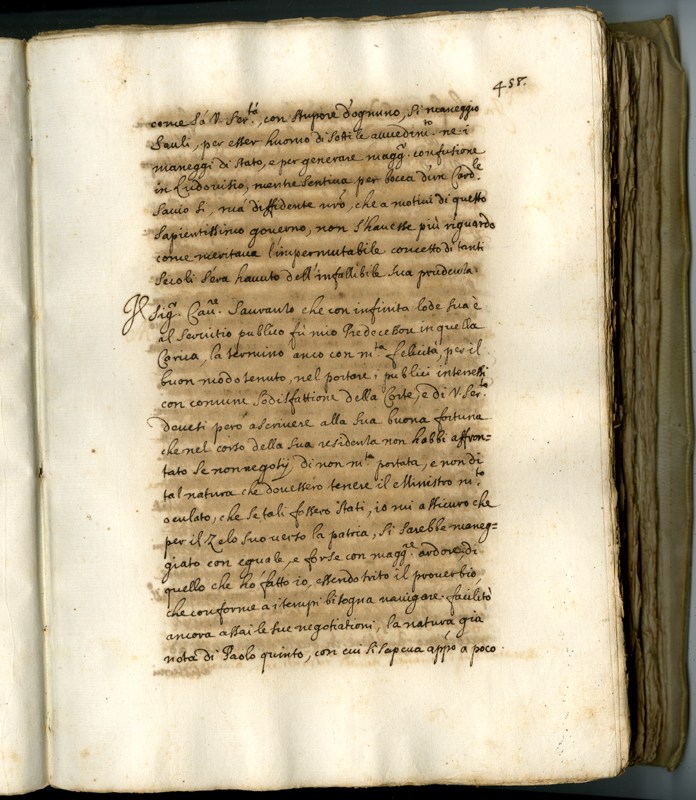 458.
come sà V. Ser.tà, con stupore d'ognuno, si maneggio
Sauli, per esser huomo di sottile avvedim.to ne i
maneggi di stato, e per generare magg.r confusione
in Ludovisio, mentre sentiva per bocca d'un Card.le
Savio si, ma diffidente nr̃o, che a motivi di questo
sapientissimo governo, non s'havesse più riguardo
come meritava l'impermutabile concetto di tanti
secoli s'era havuto dell'infallibile sua prudenza.
Il Sig.r Cau.re Sauranzo che con infinita lode sua è
al servitio publico fù mio Predecessor in quella
Carica, la termino anco con m.ta felicità per il
buon modo tenuto, nel portare i publici interessi
con comune sodisfattione della Corte, e di V. Ser.tà
devesi però ascrivere alla sua buona fortuna
che nel corso della sua residenza non habbi affron=
tato se non negotij di non m.ta portata, e non di
tal natura che dovessero tenere il Ministro m.to
oculato, che se tali fossero stati, io mi assicuro che
per il Zelo suo verso la patria, si sarebbe maneg=
giato con eguale, e forse con magg.re ardore di
quello che hò fatto io, essendo trito il proverbio
che conforme a i tempi bisogna navigare. facilitò
ancora assai le sue negotiationi, la natura già
nota di Paolo quinto, con cui si sapeva appò a poco